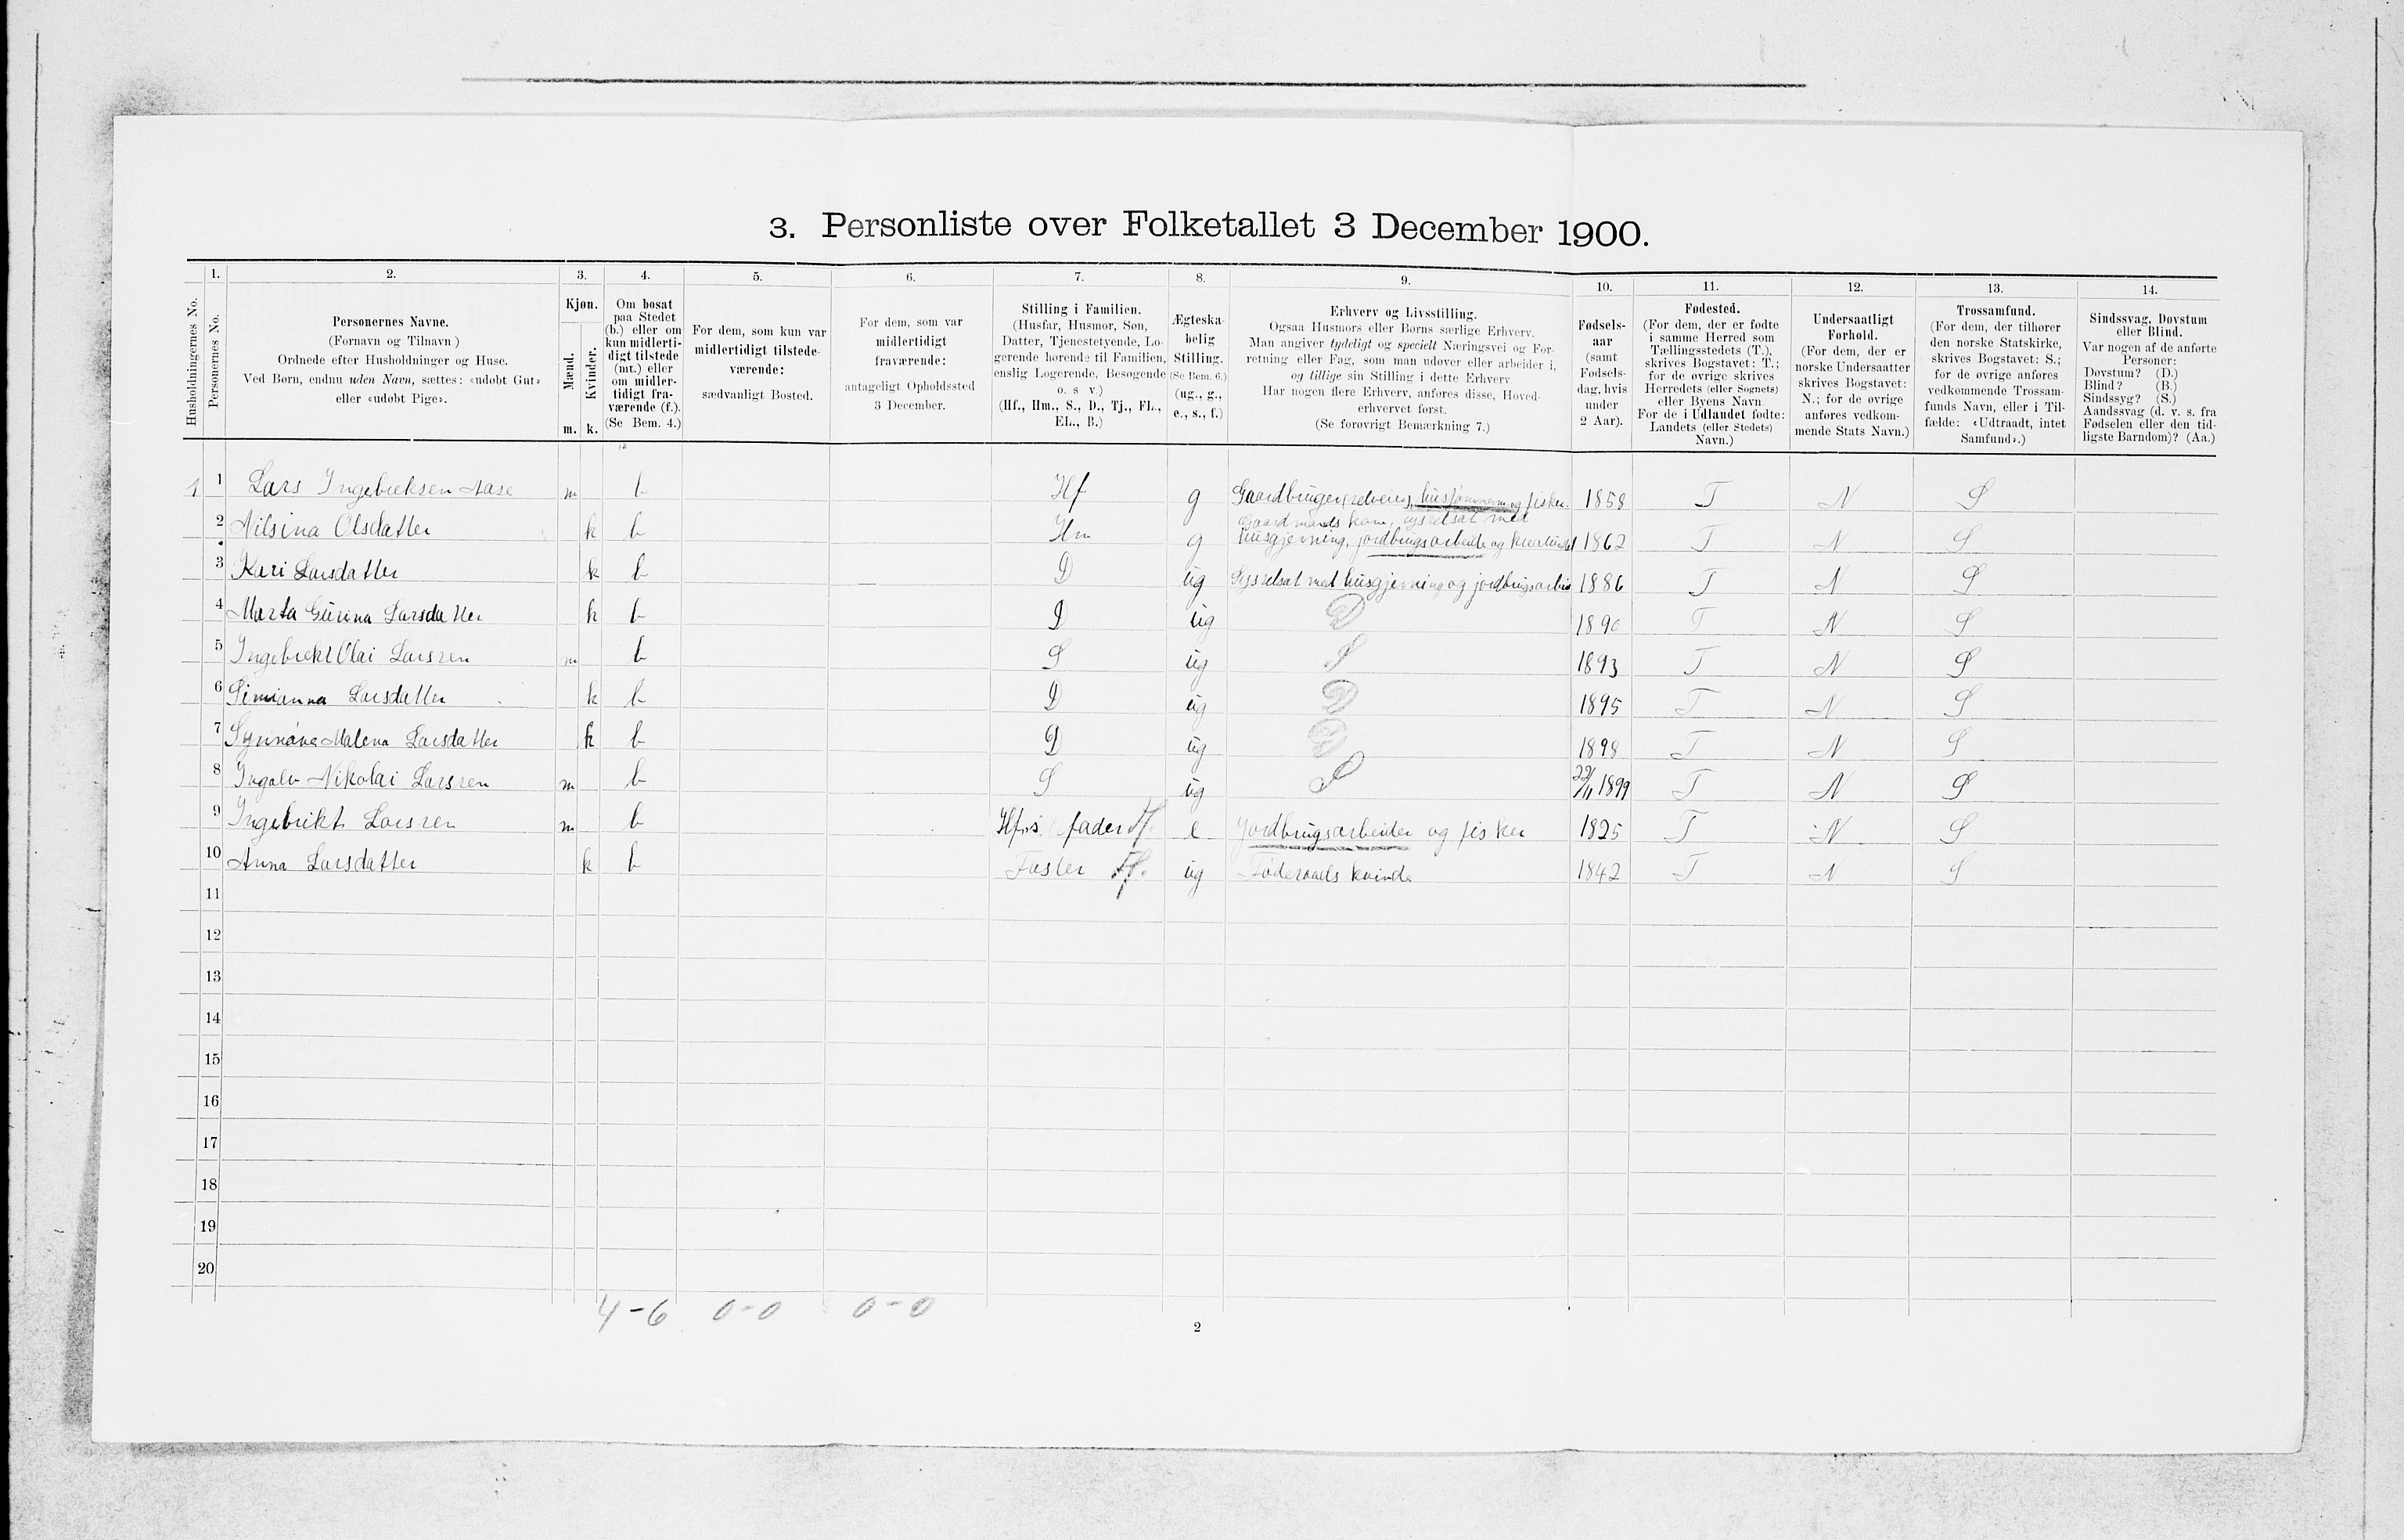 3. Personliste over Folketallet 3 December 1900.
1. 2. 3. 4. 5. 6. 7. 8. 9. 10. 11. 12. 13. 14.
Husholdningernes No.
Personernes No.
Personernes Navne.
(Fornavn og Tilnavn)
Ordnede efter Husholdninger og Huse.
Ved Børn, endnu uden Navn, sættes: «udøbt Gut»
eller «udøbt Pige».
Kjøn.
Mænd.
Kvinder.
m. k.
Om bosat
paa Stedet
(b.) eller om
kun midlerti-
digt tilstede
(mt.) eller
om midler-
tidigt fra-
værende (f.).
(Se Bem. 4.)
For dem, som kun var
midlertidigt tilstede-
værende:
sædvanligt Bosted.
For dem, som var
midlertidigt
fraværende:
antageligt Opholdssted
3 December.
Stilling i Familien.
(Husfar, Husmor, Søn,
Datter, Tjenestetyende, Lo-
gerende hørende til Familien,
enslig Logerende, Besøgende
o. s v.)
(Hf., Hm., S., D., Tj., FL.,
EL., B.)
Ægteska-
belig
Stilling.
(Se Bem. 6.)
(ug., g.,
e., s., f.)
Erhverv og Livsstilling.
Ogsaa Husmors eller Børns særlige Erhverv.
Man angiver tydeligt og specielt Næringsvei og For-
retning eller Fag, som man udøver eller arbeider i,
og tillige sin Stilling i dette Erhverv.
Har nogen flere Erhverv, anføres disse, Hoved-
erhvervet først.
(Se forøvrigt Bemærkning 7.)
Fødsels-
aar
(samt
Fødsels-
dag, hvis
under
2 Aar).
Fødested.
(For dem, der er fødte
i samme Herred som
Tællingsstedets (T.),
skrives Bogstavet: T.;
for de øvrige skrives
Herredets (eller Sognets)
eller Byens Navn
For de i Udlandet fødte:
Landets (eller Stedets)
Navn.)
Undersaatligt
Forhold.
(For dem, der er
norske Undersaatter
skrives Bogstavet:
N.; for de øvrige
anføres vedkom-
mende Stats Navn.)
Trossamfund.
(For dem, der tilhører
den norske Statskirke,
skrives Bogstavet: S.;
for de øvrige anføres
vedkommende Trossam-
funds Navn, eller i Til-
fælde: «Udtraadt, intet
Samfund».)
Sindssvag, Døvstum
eller Blind.
Var nogen af de anførte
Personer:
Døvstum? (D.)
Blind? (B.)
Sindssyg? (S.)
Aandssvag (d. v. s. fra
Fødselen eller den tid-
ligste Barndom)? (Aa.)
1 1 Lars Ingebriktsen Aase m b Hf g Gaardbruger (selveier), og fisker. 1858 T N S
2 Nilsina Olsdatter k b Hm g Gaardmands kone, sysselsat med
husgjerning, jordbrugsarbeide og kreaturstel 1862 T N S
3 Kari Larsdatter k b D ug Sysselsat med husgjerning og jordbrugsarbeide 1886 T N S
4 Marta Gurina Larsdatter k b D ug D 1890 T N S
5 Ingebrikt Olai Larssen m b S ug S 1893 T N S
6 Simianna Larsdatter k b D ug D 1895 T N S
7 Malena Larsdatter k b D ug D 1898 T N S
8 Ingolv Nikolai Larssen m b S ug S 22/11 1899 T N S
9 Ingebrikt Larssen m b Hf.s fader fl. e Jordbrugsarbeider og fisker 1825 T N S
10 Anna Larsdatter k b Faster fl. ug Føderaads kvinde 1842 T N S
11
12
13
14
15
16
17
18
19
20
4-6 0-0 0-0
2